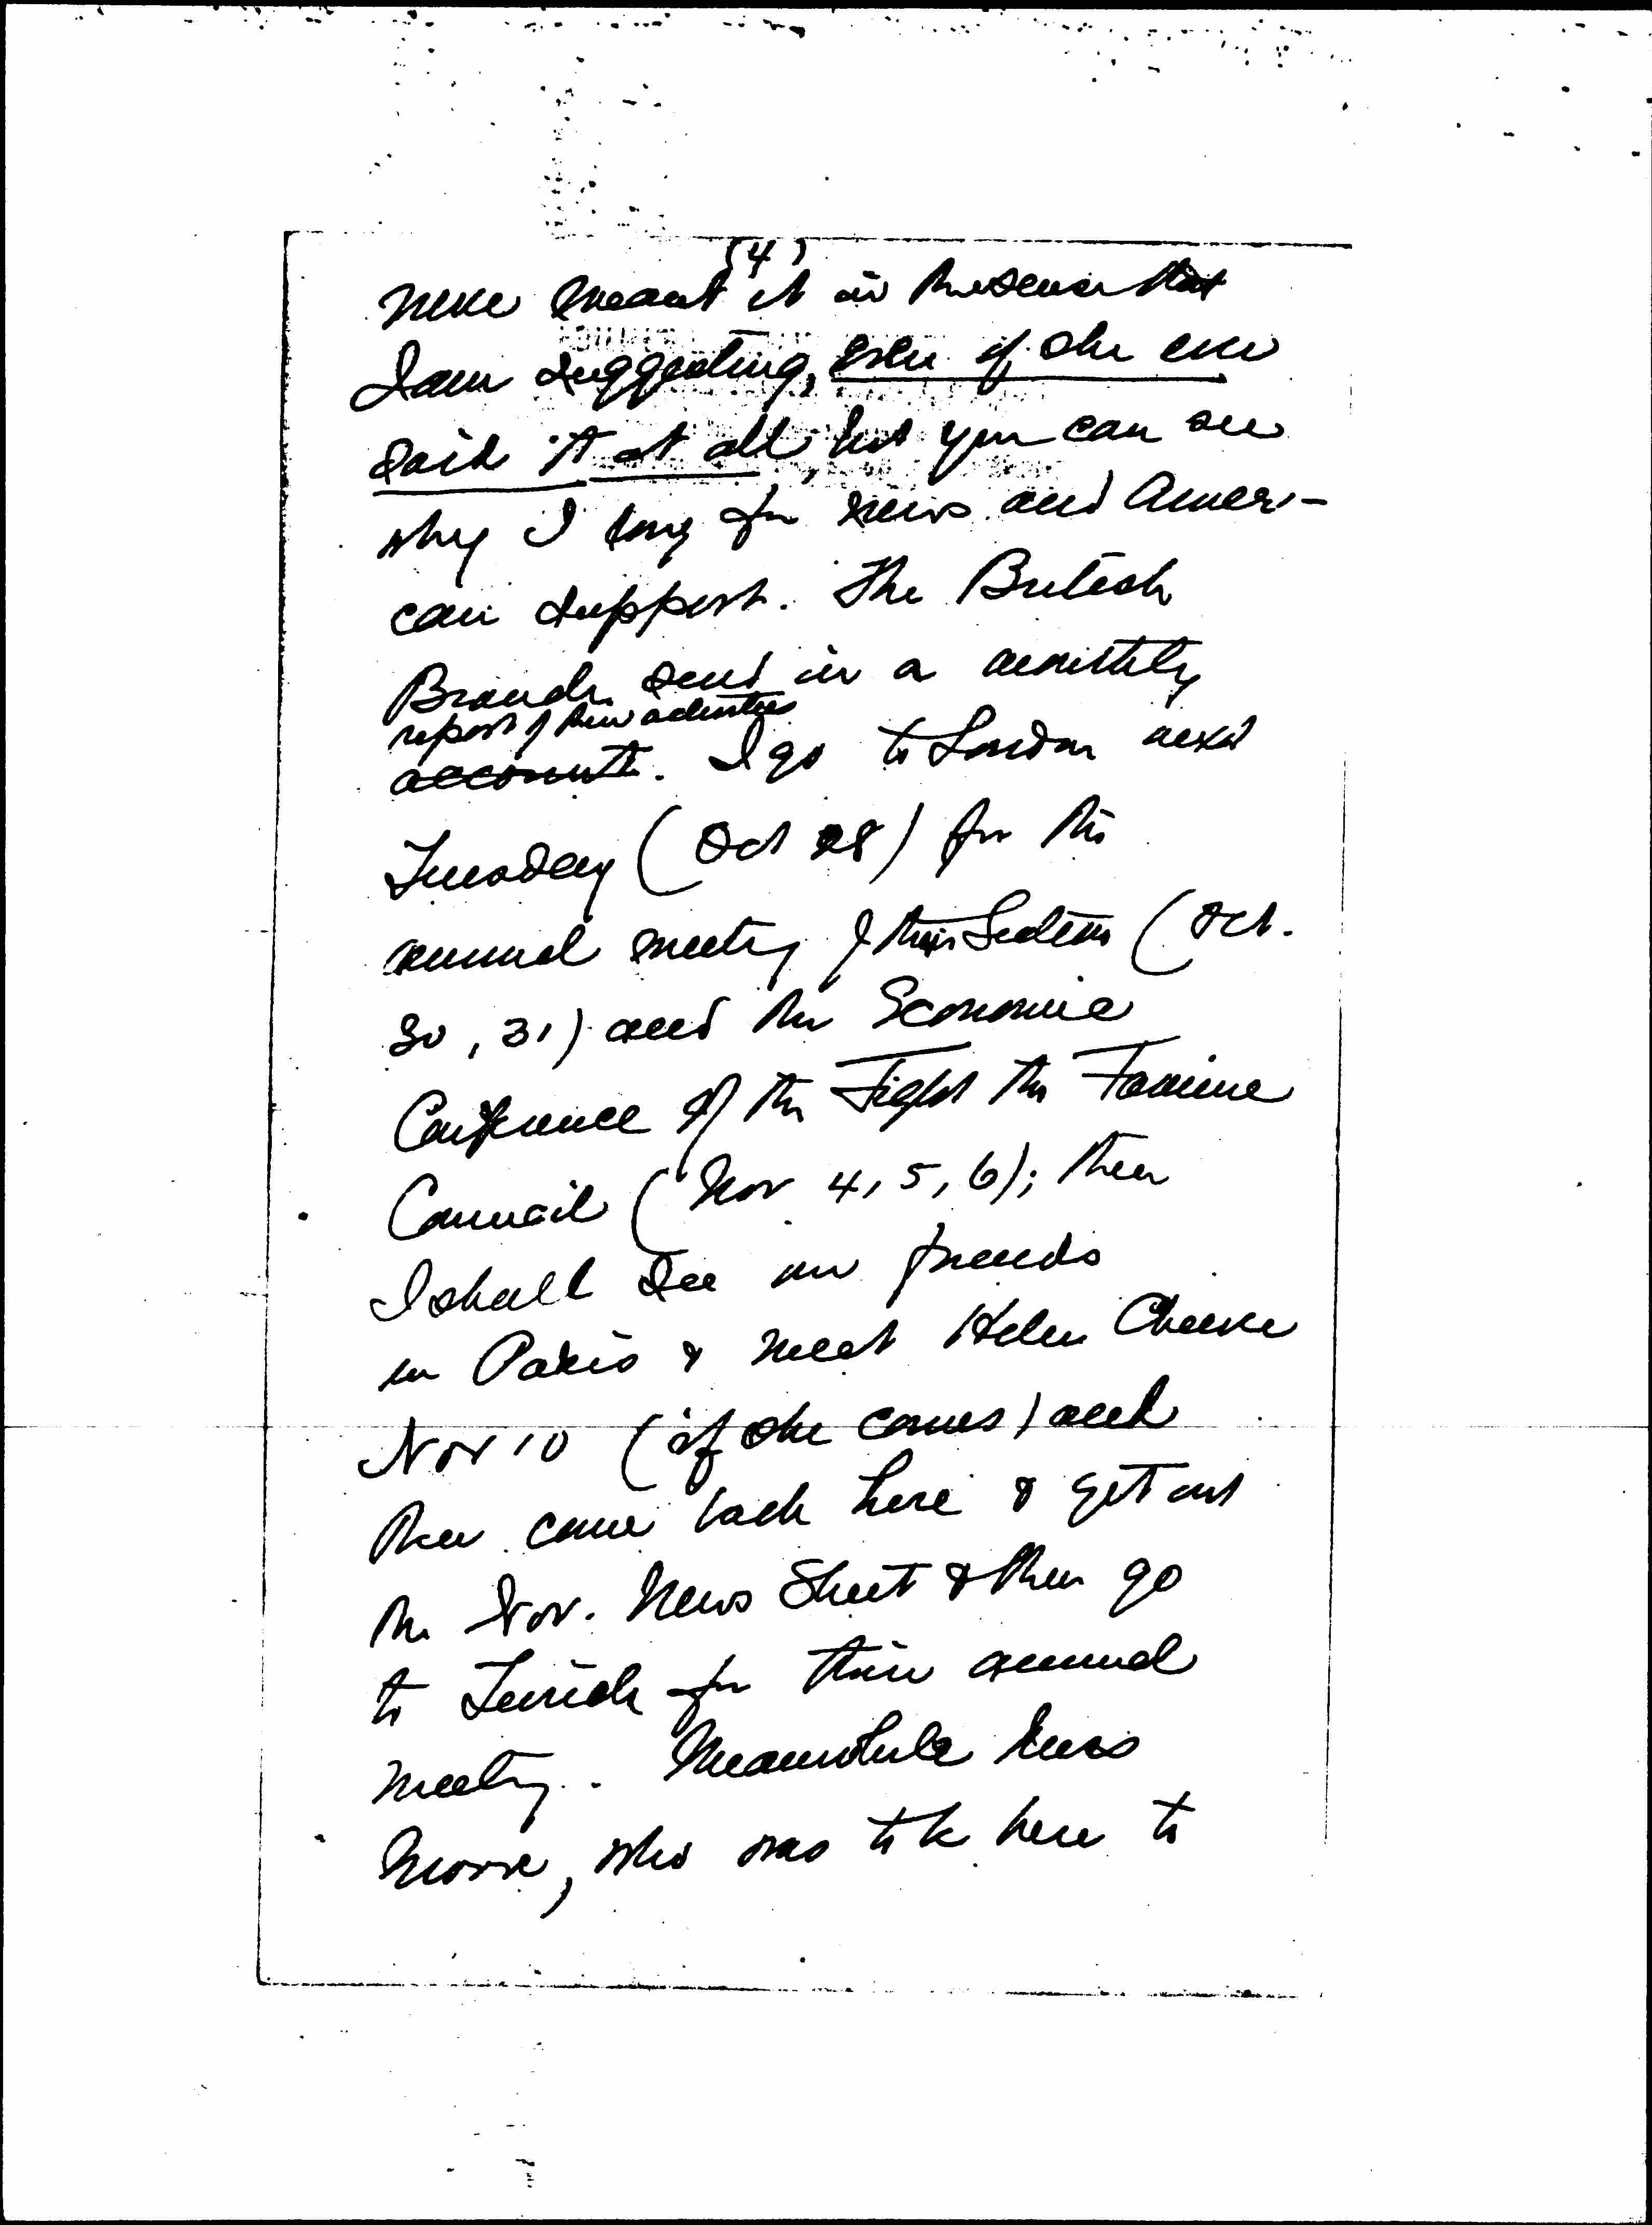 (4)
never meant it in the sense that
I am suggesting, even if she ever
said it at all, but you can see
why I long for news and Ameri-
can support. The British
Branch send in a monthly
report of their activities
accounts. I go to London next
Tuesday (Oct 28) for the
annual meeting of their Section (Oct.
30, 31) and the Economic
Conference of the Fight the Famine
Council (Nov 4, 5, 6); then
I shall see our friends
in Paris & meet Helen Cheever
Nov 10 (if she comes) and
then come back here & get out
the Nov. News Sheet & then go
to Zurich for their annual
meeting. Meanwhile
who was to be here to